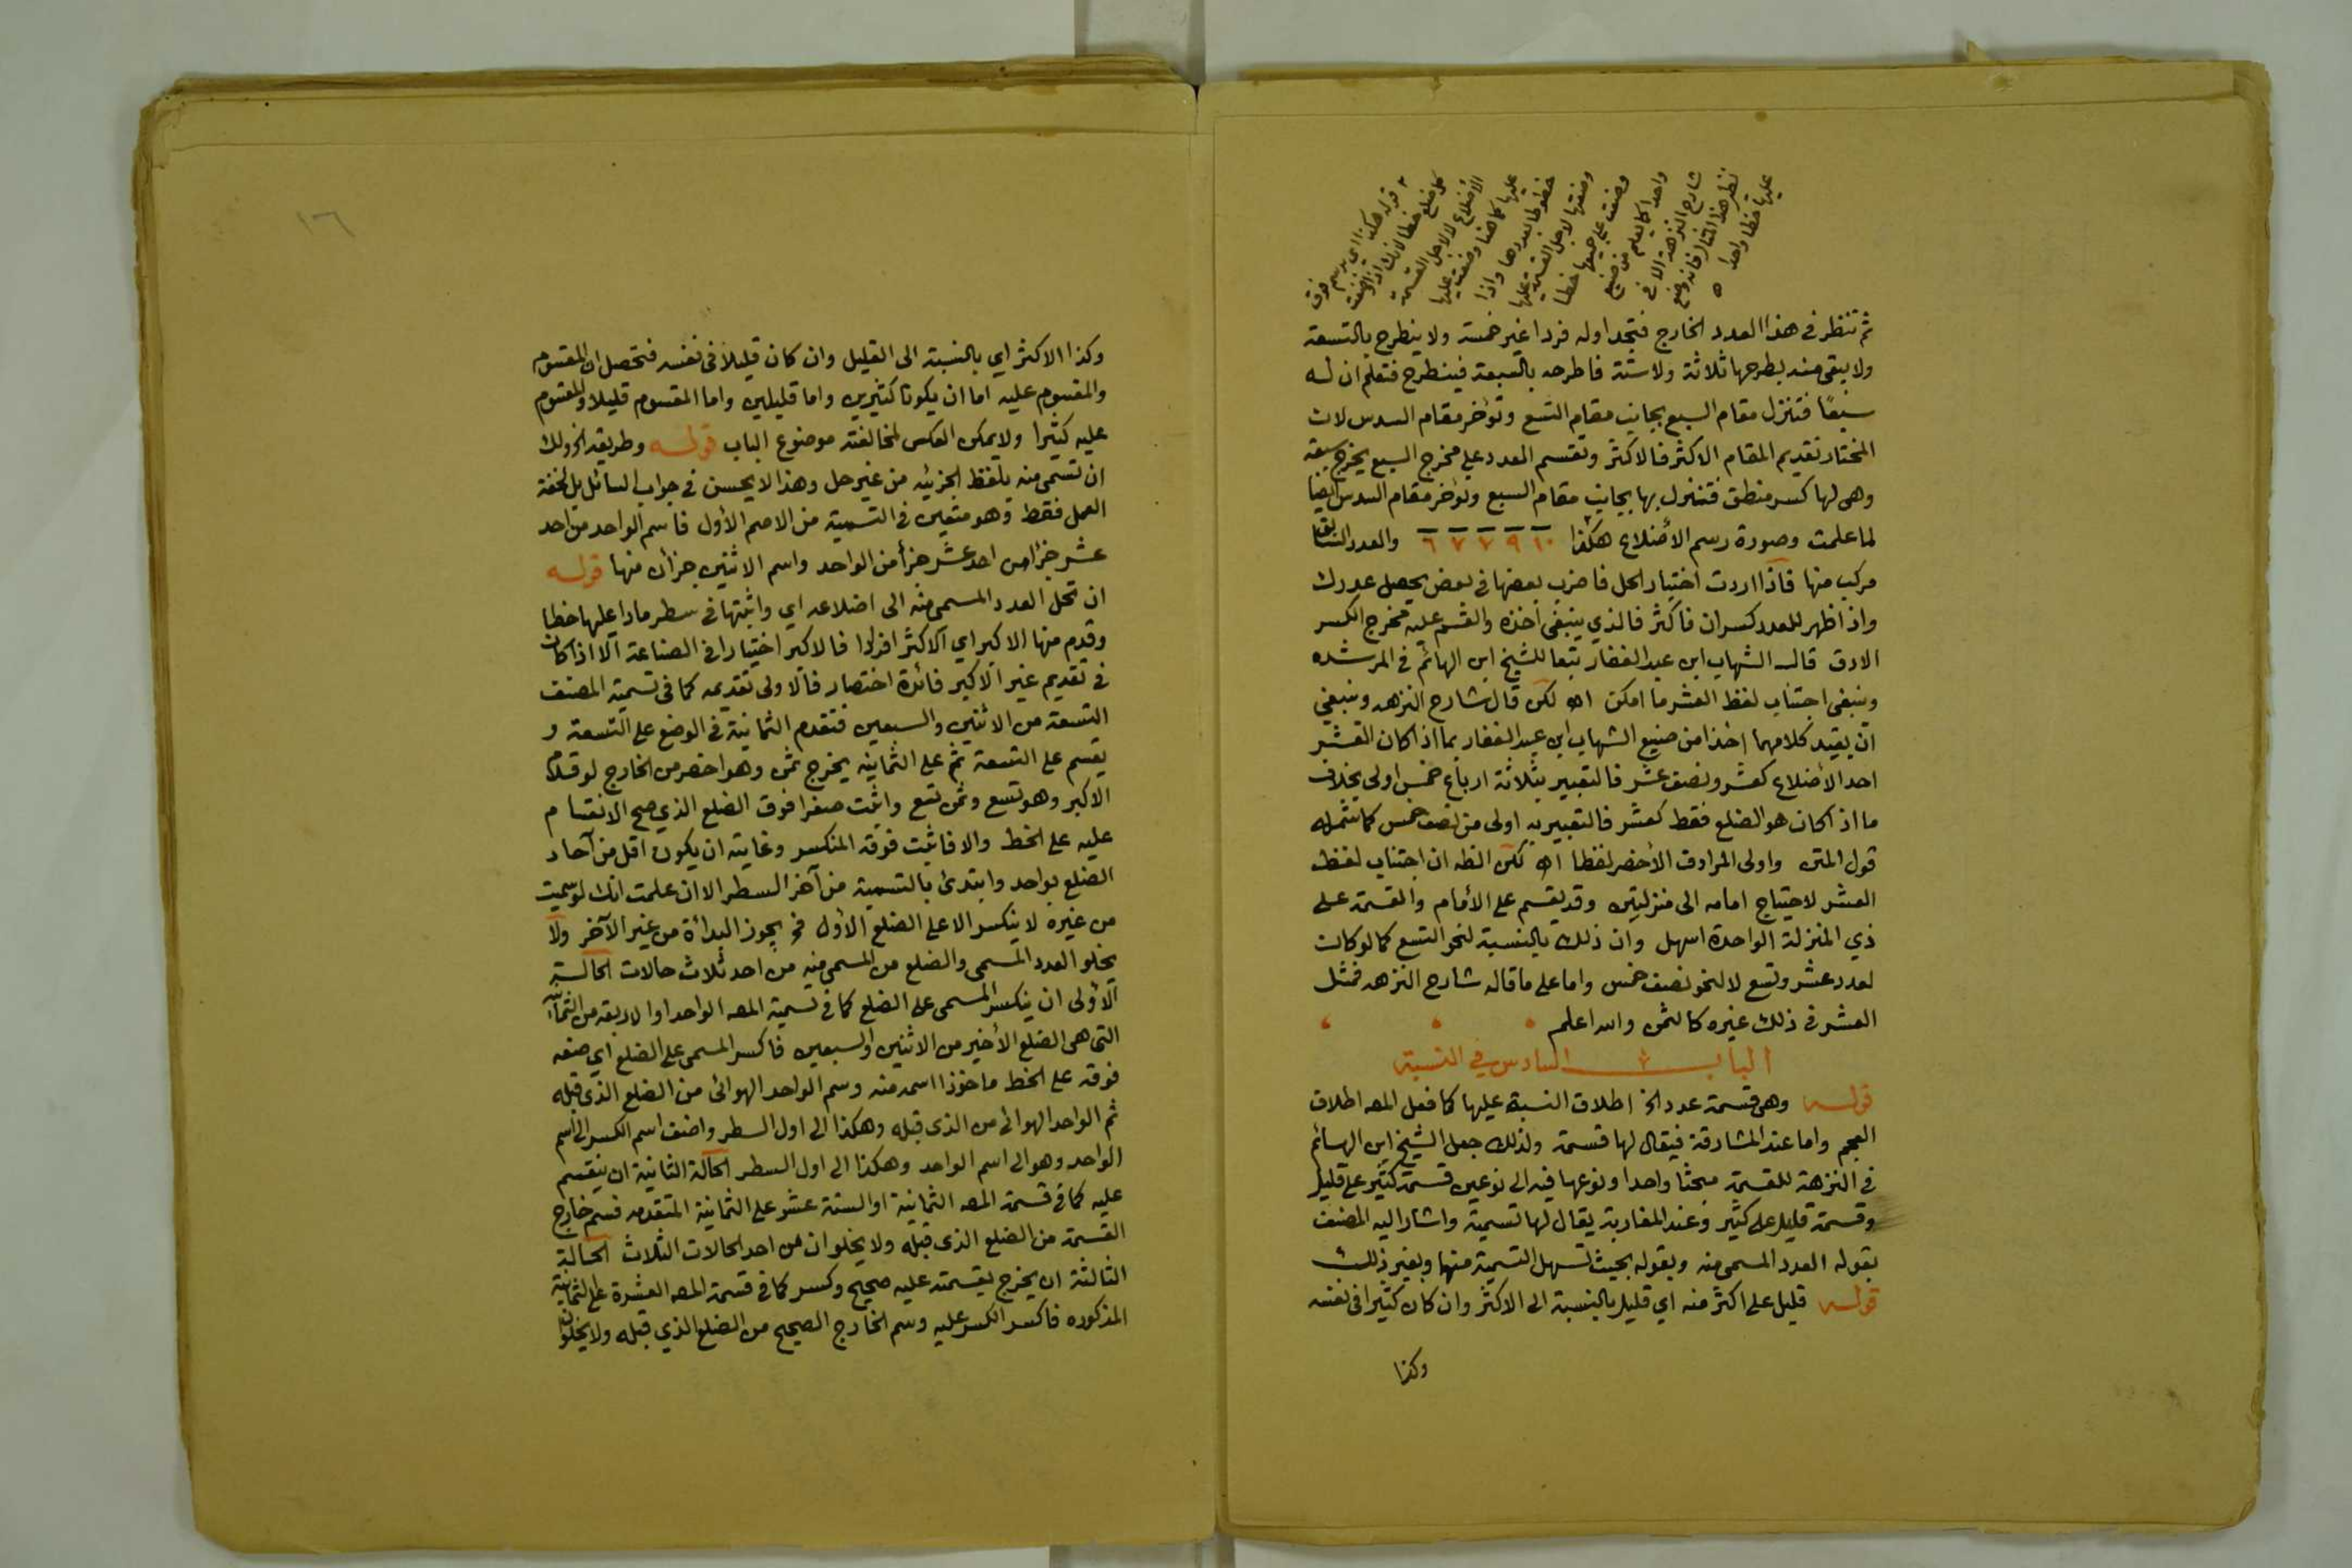 قوله هكذا اي برسم فوق
كل ضلع خطا لانك اذا وضعت
الأضلاع لا لاجل القسمة
عليها كما هنا وضعت عليها
خطوطا بعددها واذا
وضعتها لاجل القسمة عليها
وضعت على جميعها خطا
واحدا كما يعلم من صنيع
شارح النزهة الا في
نظر هذا المثال فانه وضع
عليها خطا واحدا ه
ثم تنظر في هذا العدد الخارج فتجد اوله فردا غير خمسة ولا ينطرح بالتسعة
ولا يبقى منه بطرحها ثلاثة ولا ستة فاطرحه بالسبعة فينطرح فتعلم ان له
سبعًا فتنزل مقام السبع بجانب مقام التسع وتؤخر مقام السدس لان
المختار تقديم المقام الاكثر فالاكثر وتقسم العدد على مخرج السبع يخرج سبعة
وهى لها كسر منطق فتنزل بها بجانب مقام السبع وتؤخر مقام السدس ايضا
لما علمت وصورة رسم الأضلاع هكذا ١٠ ٩ ٧ ٧ ٦ والعدد السابق
مركب منها فاذا اردت اختبار الحل فاضرب بعضها في بعض يحصل عددك
واذا ظهر للعدد كسران فاكثر فالذي ينبغى اخذه والقسم عليه مخرج الكسر
الادق قال الشهاب ابن عبد الغفار تبعا للشيخ ابن الهائم في المرشده
وينبغى اجتناب لفظ العشر ما امكن اه لكن قال شارح النزهه وينبغي
ان يقيد كلامهما اخذا من صنيع الشهاب ابن عبد الغفار بما اذا كان العشر
احد الأضلاع كعشر ونصف عشر فالتعبير بثلاثة ارباع خمس اولى بخلاف
ما اذا كان هو الضلع فقط كعشر فالتعبير به اولى من نصف خمس كما شمله
قول المتن واولى المرادف الأخصر لفظا اه لكن الظه ان اجتناب لفظ
العشر لاحتياج امامه الى منزلتين وقد يقسم على الأمام والقسمة على
ذي المنزلة الواحدة اسهل وان ذلك بالنسبة لنحو التسع كما لو كان
لعدد عشر وتسع لا لنحو نصف خمس واما على ما قاله شارح النزهه فمثل
العشر في ذلك غيره كالثمن والله اعلم
الباب السادس في النسبة
قوله وهى قسمة عدد الخ اطلاق النسبة عليها كما فعل المصه اطلاق
العجم واما عند المشارقة فيقال لها قسمة ولذلك جعل الشيخ ابن الهائم
في النزهة للقسمة مبحثا واحدا ونوعها فيه الى نوعين قسمة كثير على قليل
وقسمة قليل على كثير وعند المغاربة يقال لها تسمية واشار اليه المصنف
بقوله العدد المسمى منه وبقوله بحيث تسهل التسمية منها وبغير ذلك
قوله قليل على اكثر منه اي قليل بالنسبة الى الاكثر وان كان كثيرا في نفسه
وكذا
١٦
وكذا الاكثر اي بالنسبة الى القليل وان كان قليلا في نفسه فتحصل ان المقسوم
والمقسوم عليه اما ان يكونا كثيرين واما قليلين واما المقسوم قليلا والمقسوم
عليه كثيرا ولا يمكن العكس لمخالفته موضوع الباب قوله وطريقه الخ ولك
ان تسمى منه بلفظ الجزئيه من غير حل وهذا لا يحسن في جواب السائل بل لخفة
العمل فقط وهو متعين في التسمية من الاصم الأول فاسم الواحد من احد
عشر جزأ من احد عشر جزأ من الواحد واسم الاثنين جزأن منها قوله
ان تحل العدد المسمى منه الى اضلاعه اي واثبتها في سطر مادا عليها خطا
وقدم منها الاكبر اي الاكثر افرادا فالاكبر اختيارا في الصناعة الا اذا كان
في تقديم غير الاكبر فائدة اختصار فالاولى تقديمه كما فى تسمية المصنف
التسعة من الاثنين والسبعين فتقدم الثمانية في الوضع على التسعة و
يقسم على التسعة ثم على الثمانية يخرج ثمن وهو اخصر من الخارج لو قدم
الاكبر وهو تسع وثمن تسع واثبت صفرا فوق الضلع الذي صح الانقسام
عليه على الخط والا فاثبت فوقه المنكسر وغايته ان يكون اقل من آحاد
الضلع بواحد وابتدئ بالتسمية من آخر السطر الا ان علمت انك لو سميت
من غيره لا ينكسر الا على الضلع الأول فح يجوز البدأة من غير الآخر ولا
يخلو العدد المسمى والضلع من المسمى منه من احد ثلاث حالات الحالة
الأولى ان ينكسر المسمى على الضلع كما في تسمية المصه الواحد او الاربعة من الثمانية
التى هى الضلع الأخير من الاثنين والسبعين فاكسر المسمى على الضلع اي ضعه
فوقه على الخط ماخوذا اسمه منه وسم الواحد الهوائى من الضلع الذي قبله
ثم الواحد الهوائى من الذى قبله وهكذا الى اول السطر واضف اسم الكسر الى اسم
الواحد وهو الى اسم الواحد وهكذا الى اول السطر الحالة الثانية ان ينقسم
عليه كما في قسمة المصه الثمانية او الستة عشر على الثمانية المتقدمه فسم خارج
القسمة من الضلع الذى قبله ولا يخلوان من احد الحالات الثلاث الحالة
الثالثة ان يخرج بقسمته عليه صحيح وكسر كما في قسمة المصه العشرة على الثمانية
المذكوره فاكسر الكسر عليه وسم الخارج الصحيح من الضلع الذي قبله ولا يخلوان